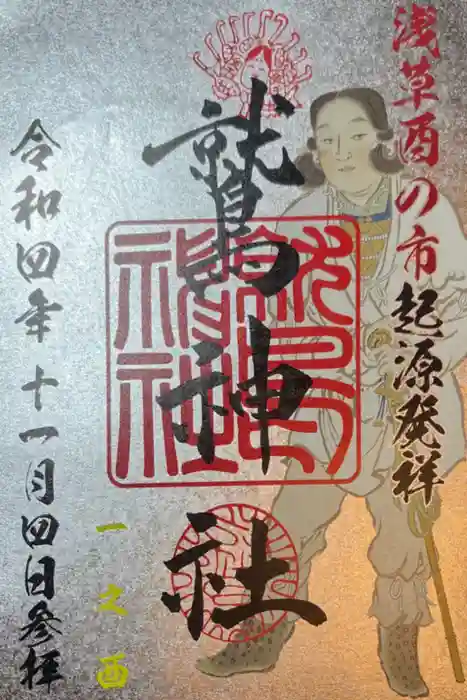 浅草酉の市起源発祥
鷲神社
令和四年十一月四日参拝
一之酉